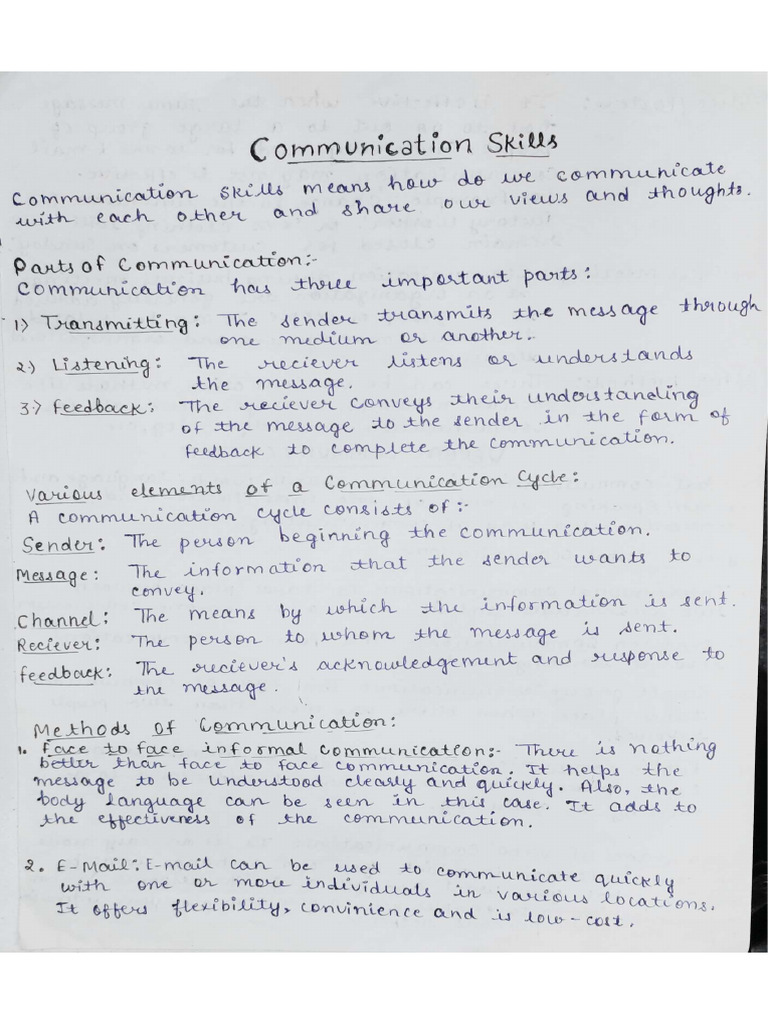 Communication Skills
Communication skills means how do we communicate
with each other and share our views and thoughts.
Parts of Communication:-
Communication has three important parts:
1) Transmitting: The sender transmits the message through
one medium or another.
2) Listening: The reciever listens or understands
the message.
3) Feedback: The reciever conveys their understanding
of the message to the sender in the form of
feedback to complete the communication.
Various elements of a Communication Cycle:
A communication cycle consists of:-
Sender: The person beginning the communication.
Message: The information that the sender wants to
convey.
Channel: The means by which the information is sent.
Reciever: The person to whom the message is sent.
feedback: The reciever's acknowledgement and response to
the message.
Methods of Communication:
1. Face to face informal communication:- There is nothing
better than face to face communication. It helps the
message to be understood clearly and quickly. Also, the
body language can be seen in this case. It adds to
the effectiveness of the communication.
2. E-Mail: E-mail can be used to communicate quickly
with one or more individuals in various locations.
It offers flexibility, convinience and is low-cost.